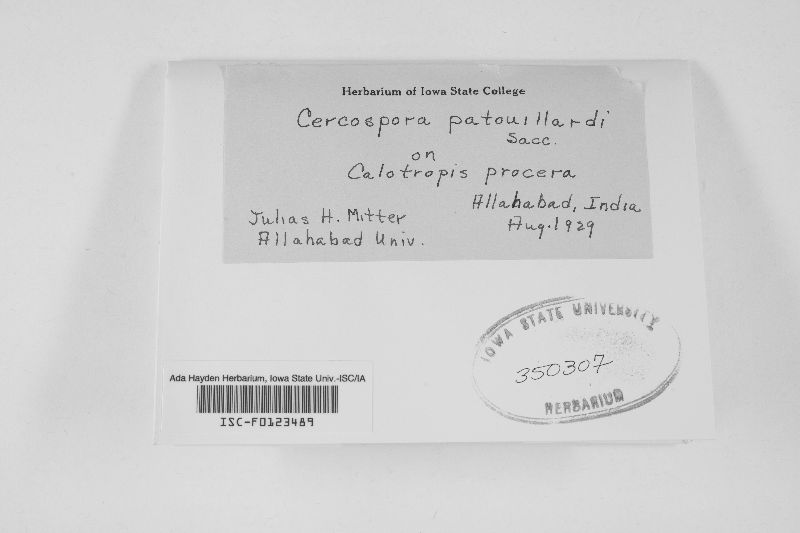 Herbarium of Iowa State College
Cercospora patouillardi
Sacc.
on
Calotropis procera
Allahabad, India
Aug. 1929
Julias H. Mitter
Allahabad Univ.
IOWA STATE UNIVERSITY
350307
HERBARIUM
Ada Hayden Herbarium, Iowa State Univ.-ISC/IA
ISC-F0123489